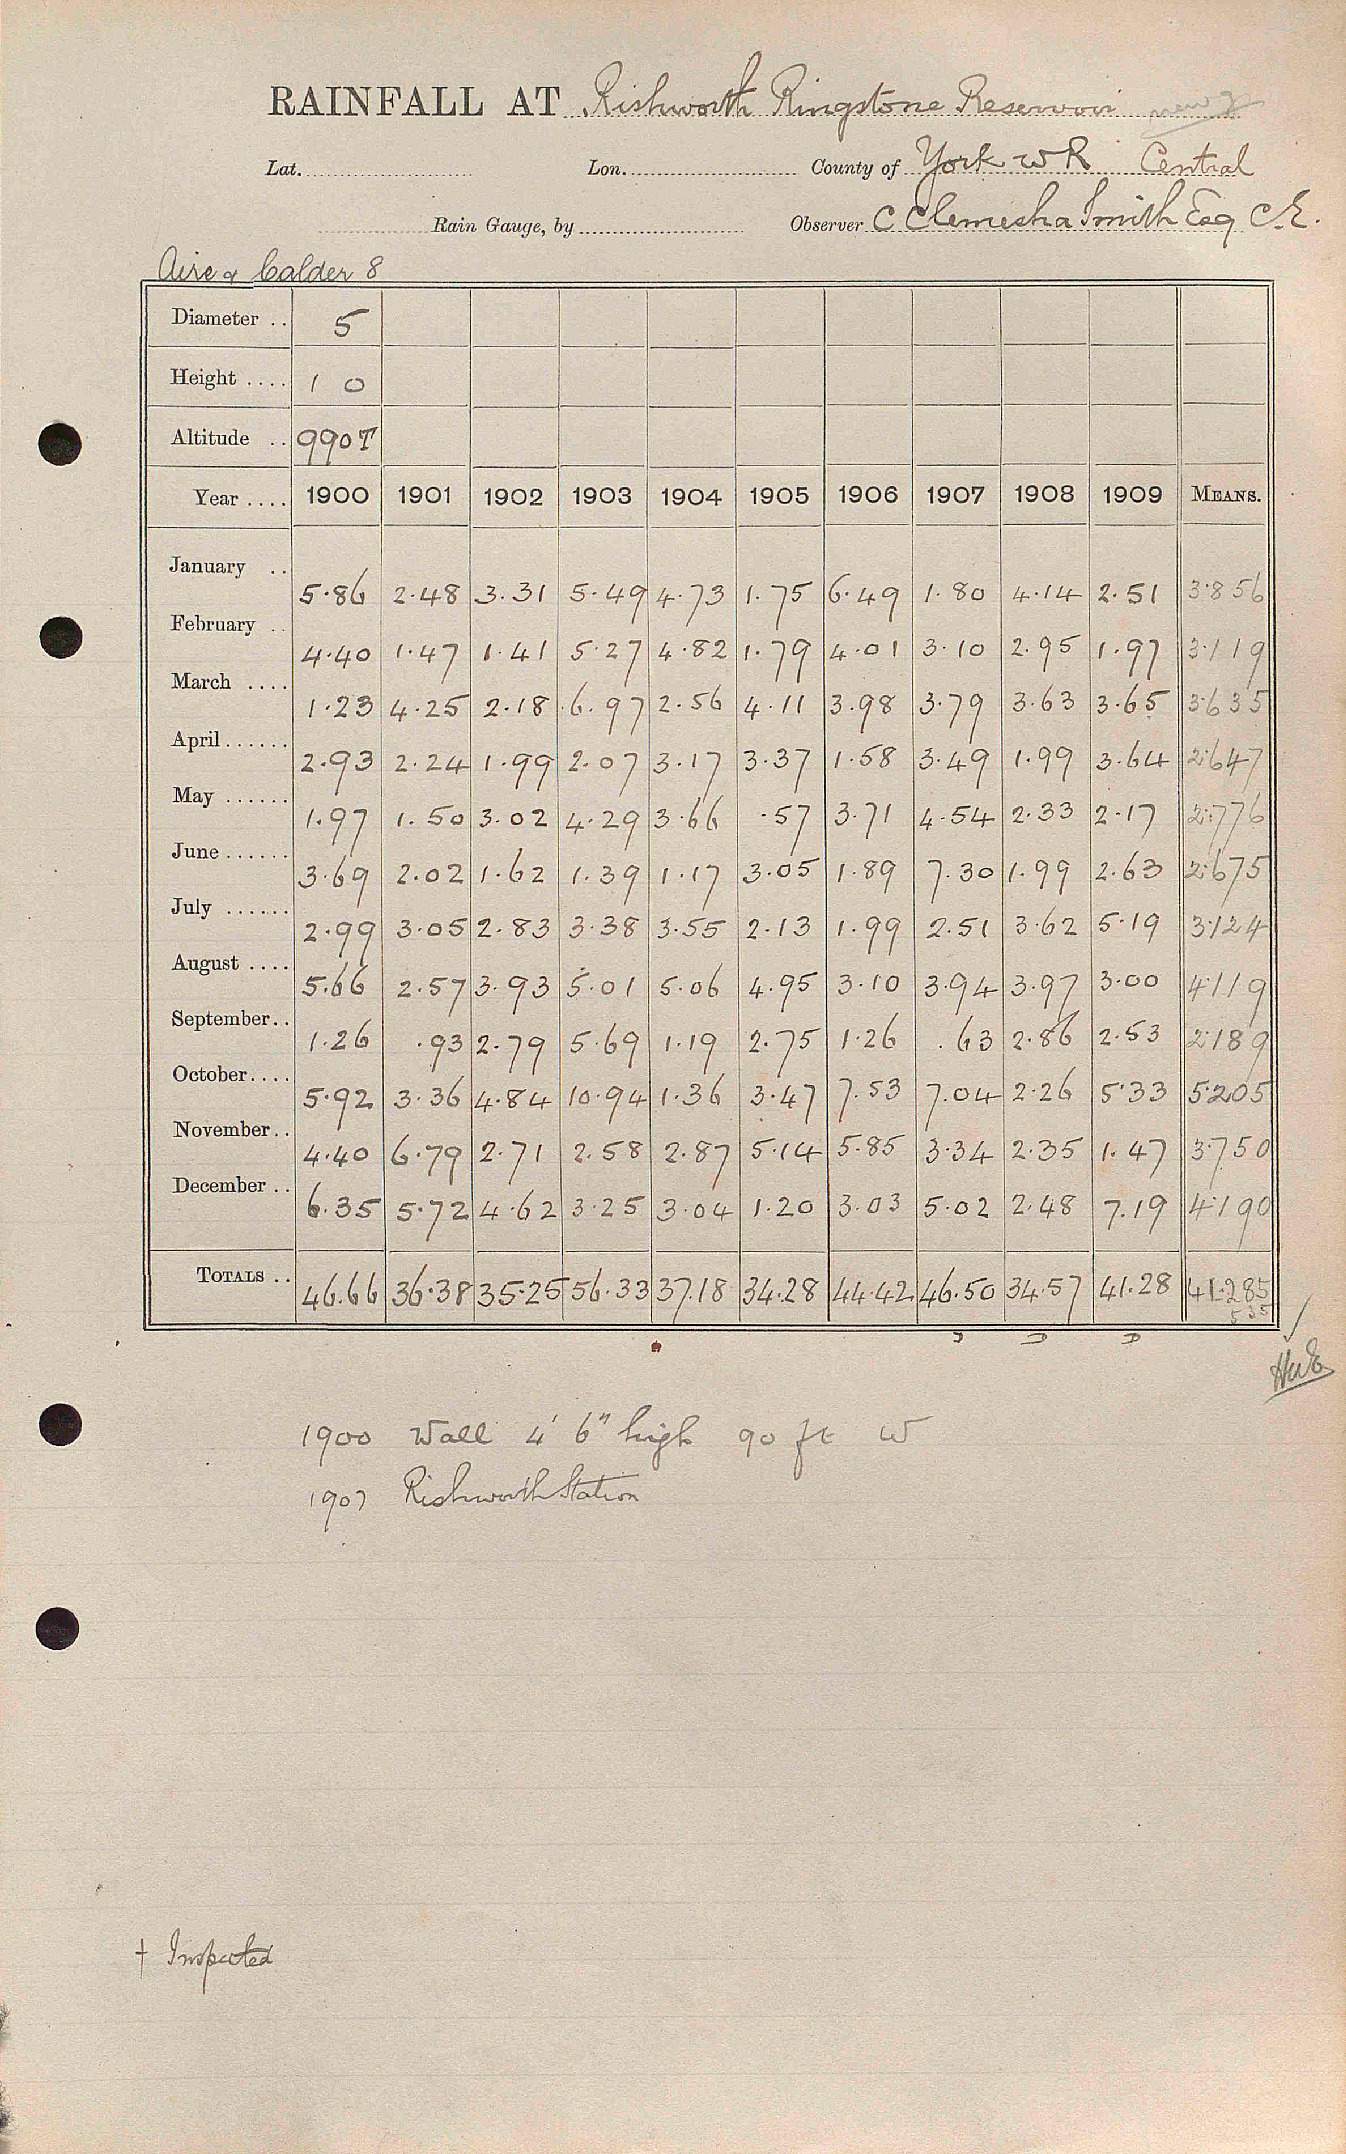 RAINFALL AT Rishworth Ringstone Reservoir
Lat. Lon. County of York W R Central
Rain Gauge, by Observer C Clemesha Smith Esq C.E.
Aire & Calder 8
Diameter .. 5
Height .... 1 0
Altitude .. 990T
Year .... 1900 1901 1902 1903 1904 1905 1906 1907 1908 1909 MEANS.
January .. 5.86 2.48 3.31 5.49 4.73 1.75 6.49 1.80 4.14 2.51 3.856
February .. 4.40 1.47 1.41 5.27 4.82 1.79 4.01 3.10 2.95 1.97 3.119
March .... 1.23 4.25 2.18 6.97 2.56 4.11 3.98 3.79 3.63 3.65 3.635
April ...... 2.93 2.24 1.99 2.07 3.17 3.37 1.58 3.49 1.99 3.64 2.647
May ...... 1.97 1.50 3.02 4.29 3.66 .57 3.71 4.54 2.33 2.17 2.776
June ...... 3.69 2.02 1.62 1.39 1.17 3.05 1.89 7.30 1.99 2.63 2.675
July ...... 2.99 3.05 2.83 3.38 3.55 2.13 1.99 2.51 3.62 5.19 3.124
August .... 5.66 2.57 3.93 5.01 5.06 4.95 3.10 3.94 3.97 3.00 4.119
September .. 1.26 .93 2.79 5.69 1.19 2.75 1.26 .63 2.86 2.53 2.189
October .... 5.92 3.36 4.84 10.94 1.36 3.47 7.53 7.04 2.26 5.33 5.205
November .. 4.40 6.79 2.71 2.58 2.87 5.14 5.85 3.34 2.35 1.47 3.750
December .. 6.35 5.72 4.62 3.25 3.04 1.20 3.03 5.02 2.48 7.19 4.190
TOTALS .. 46.66 36.38 35.25 56.33 37.18 34.28 44.42 46.50 34.57 41.28 41.285
1900 Wall 4' 6" high 90 ft W
1907 Rishworth Station
† Inspected